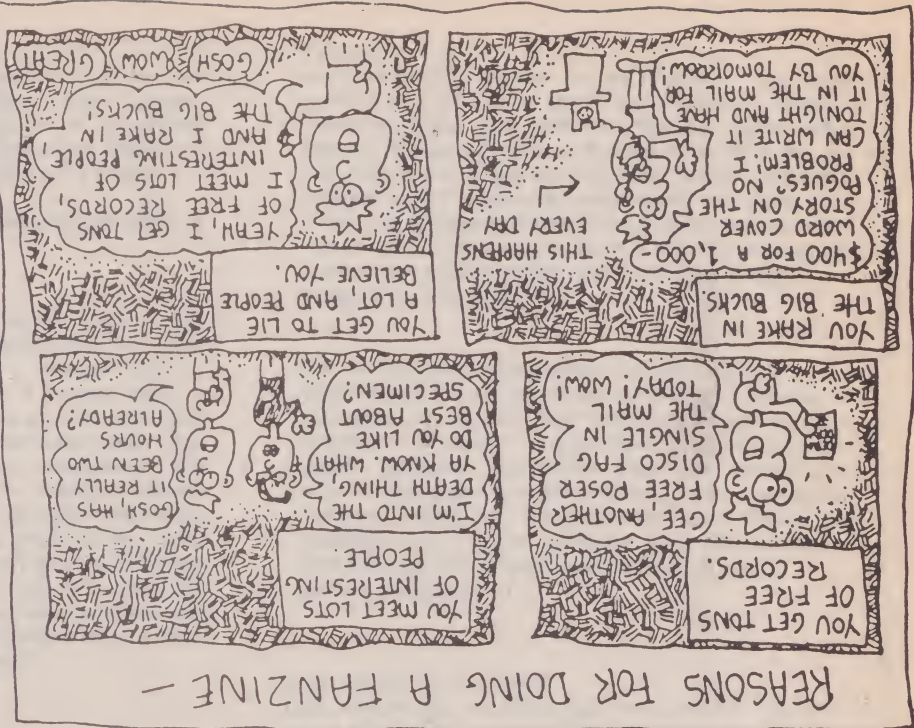 REASONS FOR DOING A FANZINE —
YOU GET TONS
OF FREE
RECORDS.
GEE, ANOTHER
FREE POSER
DISCO FAG
SINGLE IN
THE MAIL
TODAY! WOW!
YOU MEET LOTS
OF INTERESTING
PEOPLE.
I'M INTO THE
DEATH THING,
YA KNOW. WHAT
DO YOU LIKE
BEST ABOUT
SPECIMEN?
GOSH, HAS
IT REALLY
BEEN TWO
HOURS
ALREADY?
YOU RAKE IN
THE BIG BUCKS.
$400 FOR A 1,000-
WORD COVER
STORY ON THE
POGUES? NO
PROBLEM! I
CAN WRITE IT
TONIGHT AND HAVE
IT IN THE MAIL FOR
YOU BY TOMORROW!
THIS HAPPENS
EVERY DAY
YOU GET TO LIE
A LOT, AND PEOPLE
BELIEVE YOU.
YEAH, I GET TONS
OF FREE RECORDS,
I MEET LOTS OF
INTERESTING PEOPLE,
AND I RAKE IN
THE BIG BUCKS!
GOSH
WOW
GREAT